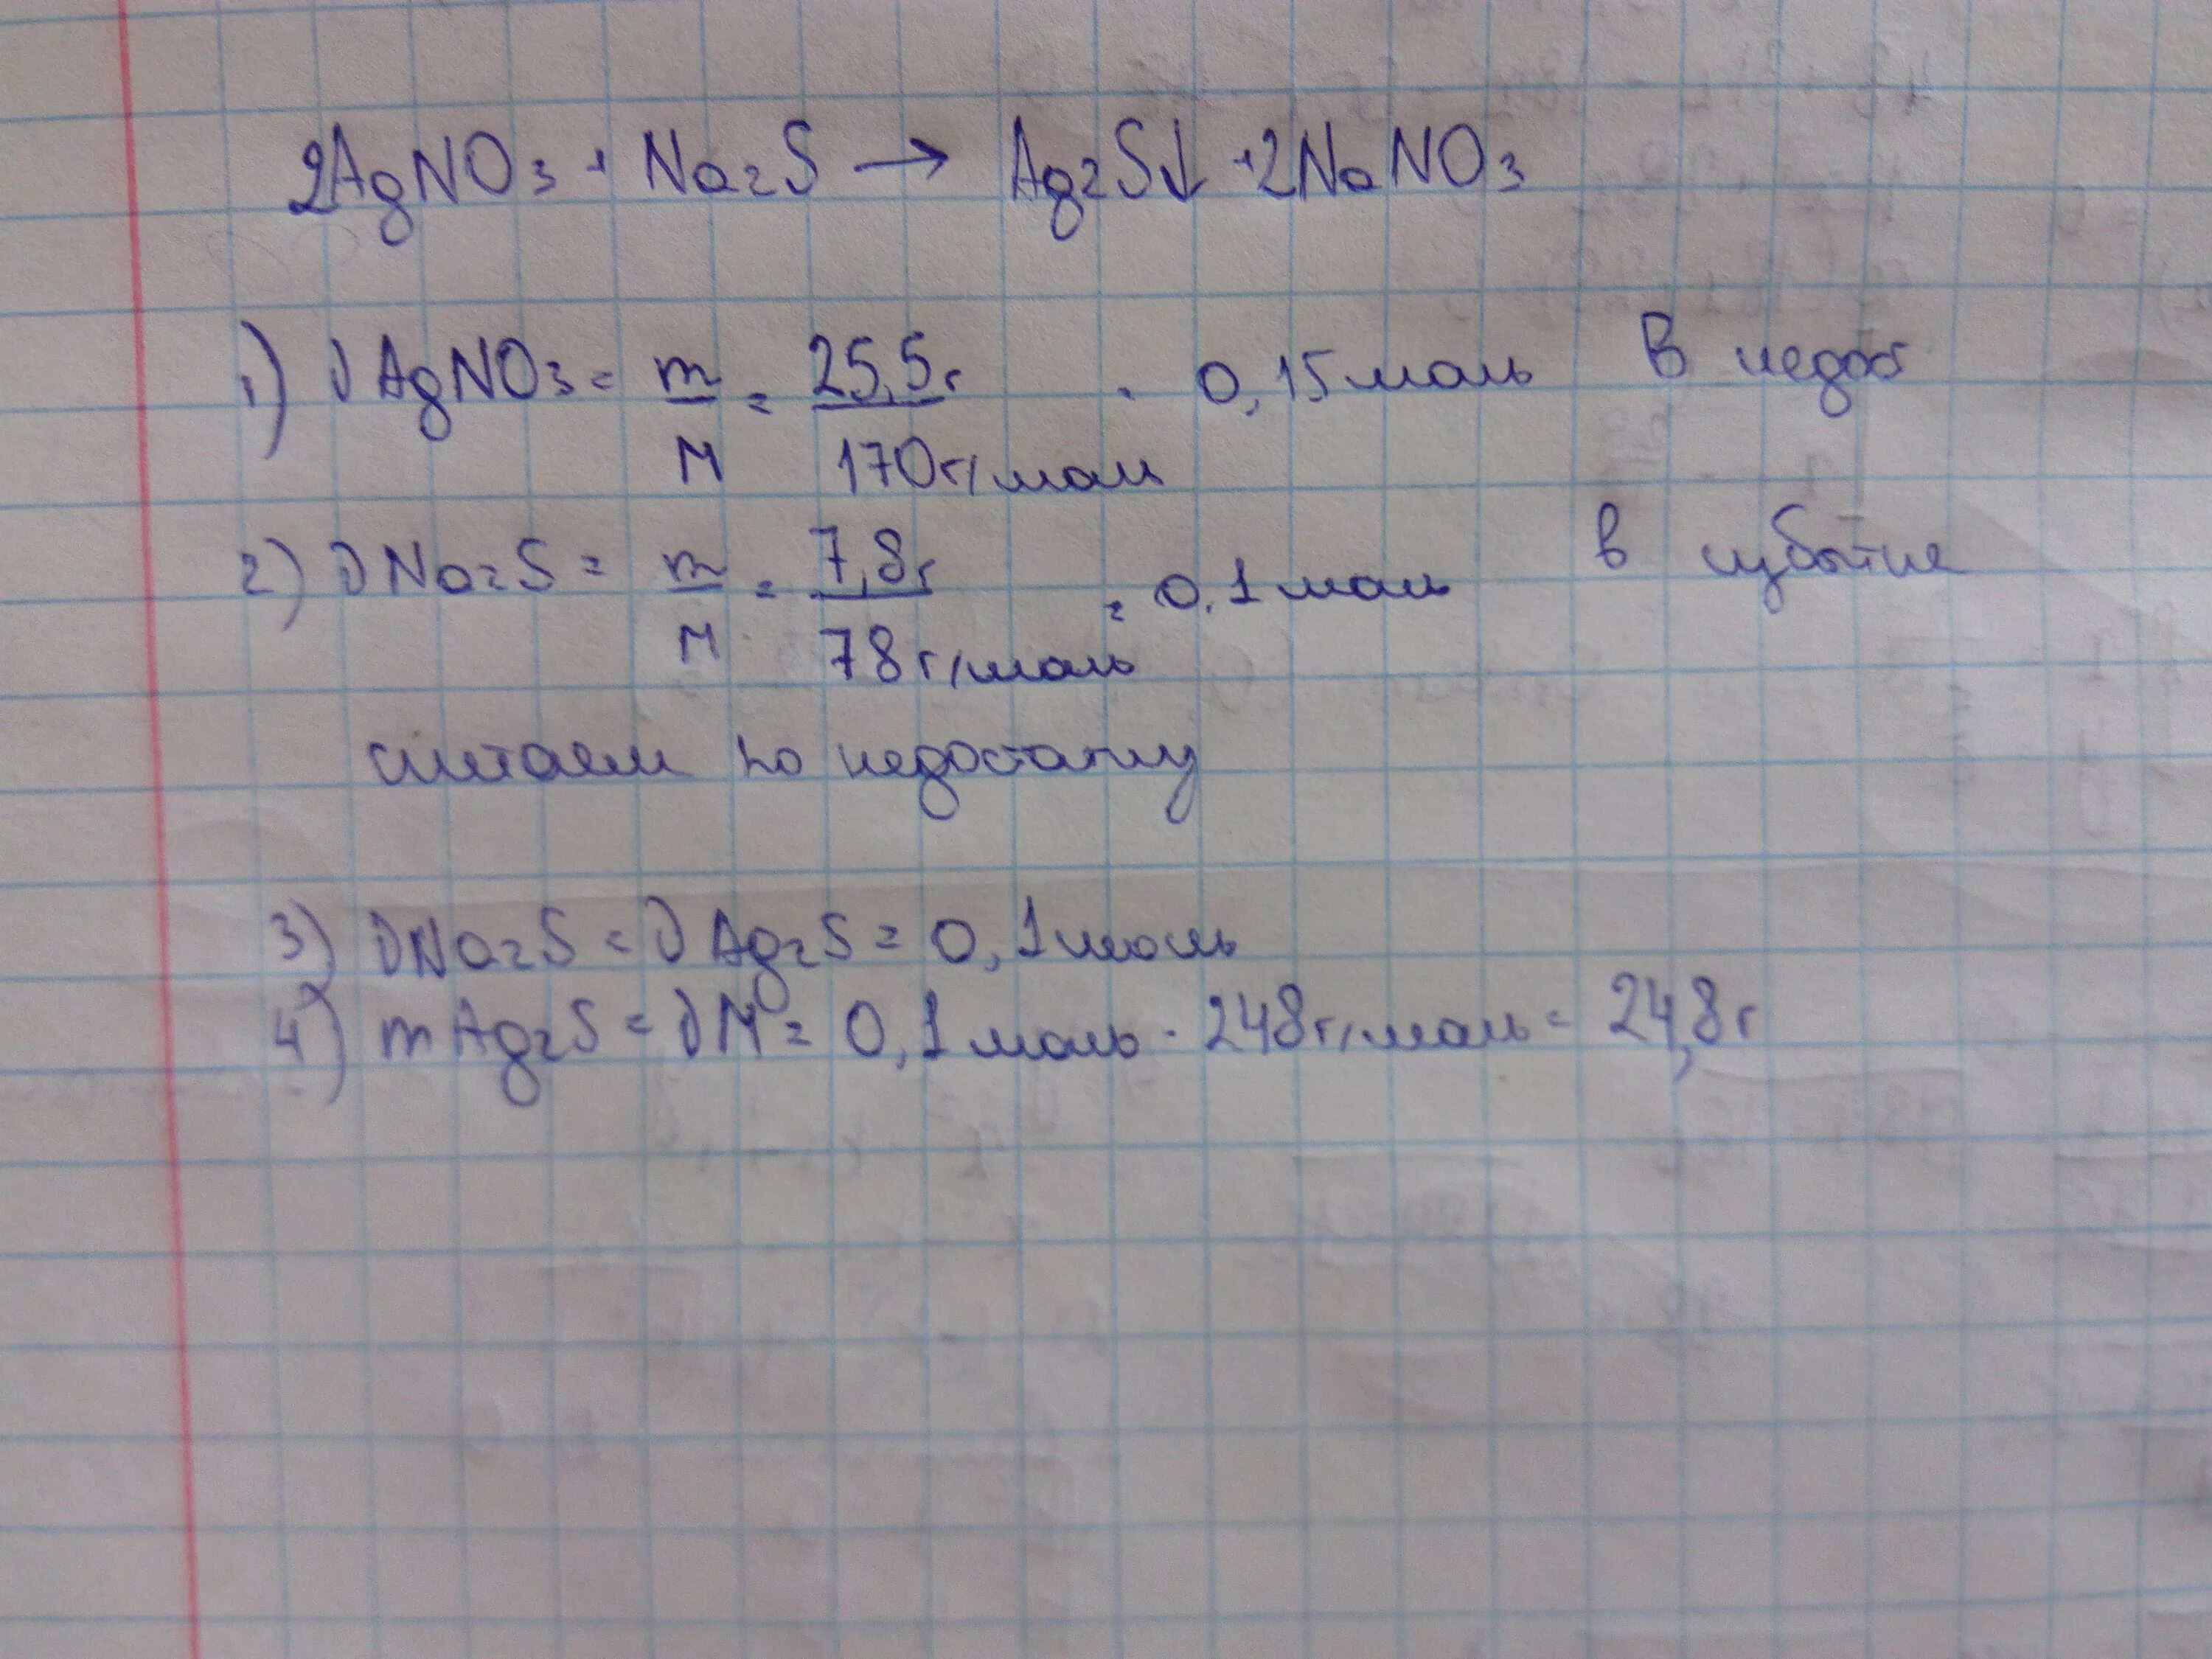 2AgNO₃ + Na₂S → Ag₂S↓ + 2NaNO₃
1) ν AgNO₃ = m/M = 25,5г / 170г/моль = 0,15моль В недост
2) ν Na₂S = m/M = 7,8г / 78г/моль = 0,1моль в избытке
считаем по недостатку
3) νNa₂S = ν Ag₂S = 0,1моль
4) m Ag₂S = νM = 0,1моль · 248г/моль = 24,8г